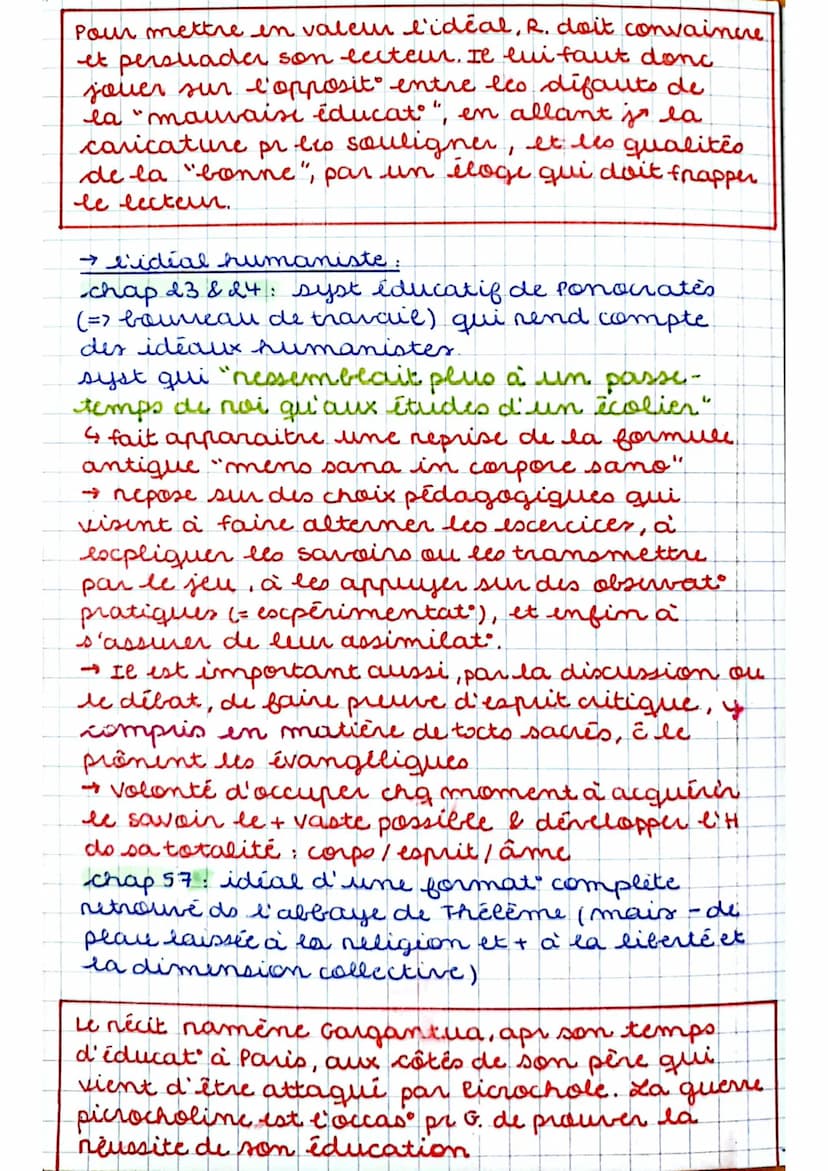 Pour mettre en valeur l'idéal, R. doit convaincre
et persuader son lecteur. Il lui faut donc
jouer sur l'opposit° entre les défauts de
la "mauvaise éducat°", en allant jsq la
caricature pr les souligner, et les qualités
de la "bonne", par un éloge qui doit frapper
le lecteur.
→ l'idéal humaniste :
chap 23 & 24 : syst éducatif de Ponocratès
(=> bourreau de travail) qui rend compte
des idéaux humanistes
syst qui "ressemblait plus à un passe-
temps de roi qu'aux études d'un écolier"
↳ fait apparaitre une reprise de la formule
antique "mens sana in corpore sano"
→ repose sur des choix pédagogiques qui
visent à faire alterner les exercices, à
expliquer les savoirs ou les transmettre
par le jeu, à les appuyer sur des observat°
pratiques (= expérimentat°), et enfin à
s'assurer de leur assimilat°.
→ Il est important aussi, par la discussion ou
le débat, de faire preuve d'esprit critique, y
compris en matière de txts sacrés, c̄ le
prônent les évangéliques
→ volonté d'occuper chq moment à acquérir
le savoir le + vaste possible & développer l'H
ds sa totalité : corps / esprit / âme
chap 57 : idéal d'une format° complète
retrouvé ds l'abbaye de Thélème (mais - de
place laissée à la religion et + à la liberté et
la dimension collective)
Le récit ramène Gargantua, apr son temps
d'éducat° à Paris, aux côtés de son père qui
vient d'être attaqué par Picrochole. La guerre
picrocholine est l'occas° pr G. de prouver la
réussite de son éducation